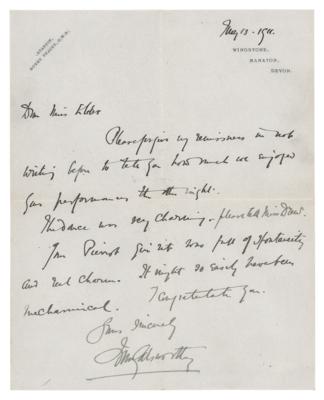 May 13 - 1911.
WINGSTONE,
MANATON,
DEVON.
Dear Miss Elder
Please forgive my remissness in not
writing before to tell you how much we enjoyed
your performances the other night.
The dance was very charming. please tell Miss Drew.
Your Pierrot was full of spontaneity
and real charm. It might so easily have been
mechanical. I congratulate you.
Yours sincerely
John Galsworthy